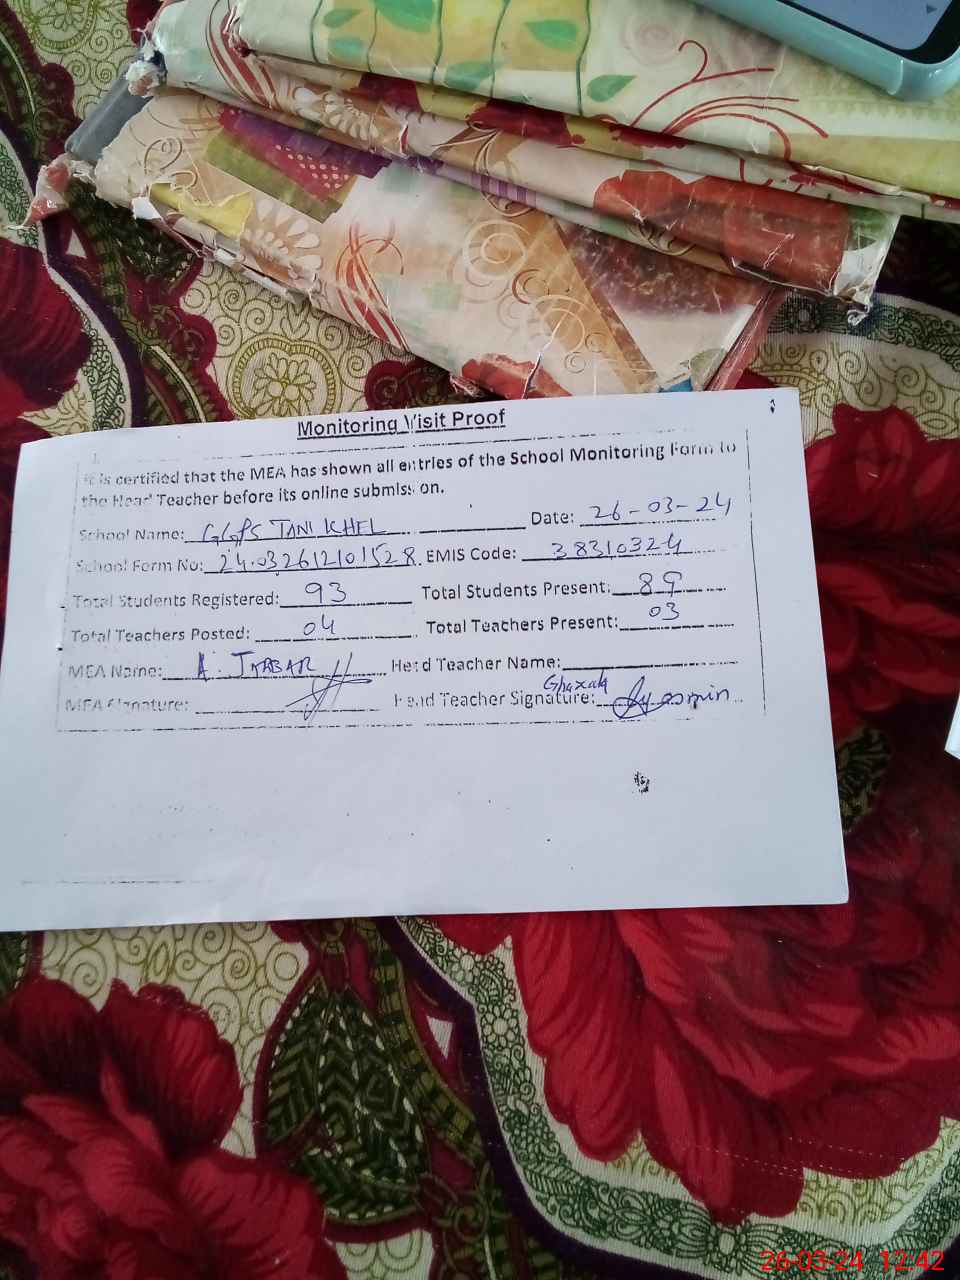 Monitoring Visit Proof
It is certified that the MEA has shown all entries of the School Monitoring Form to
the Head Teacher before its online submission.
School Name: GGPS TANI KHEL Date: 26-03-24
School Form No: 24.032612101528 EMIS Code: 38310324
Total Students Registered: 93 Total Students Present: 89
Total Teachers Posted: 04 Total Teachers Present: 03
MEA Name: A. JABBAR Head Teacher Name:
MEA Signature: Head Teacher Signature: Ghazala Yasmin
26-03-24 12:42